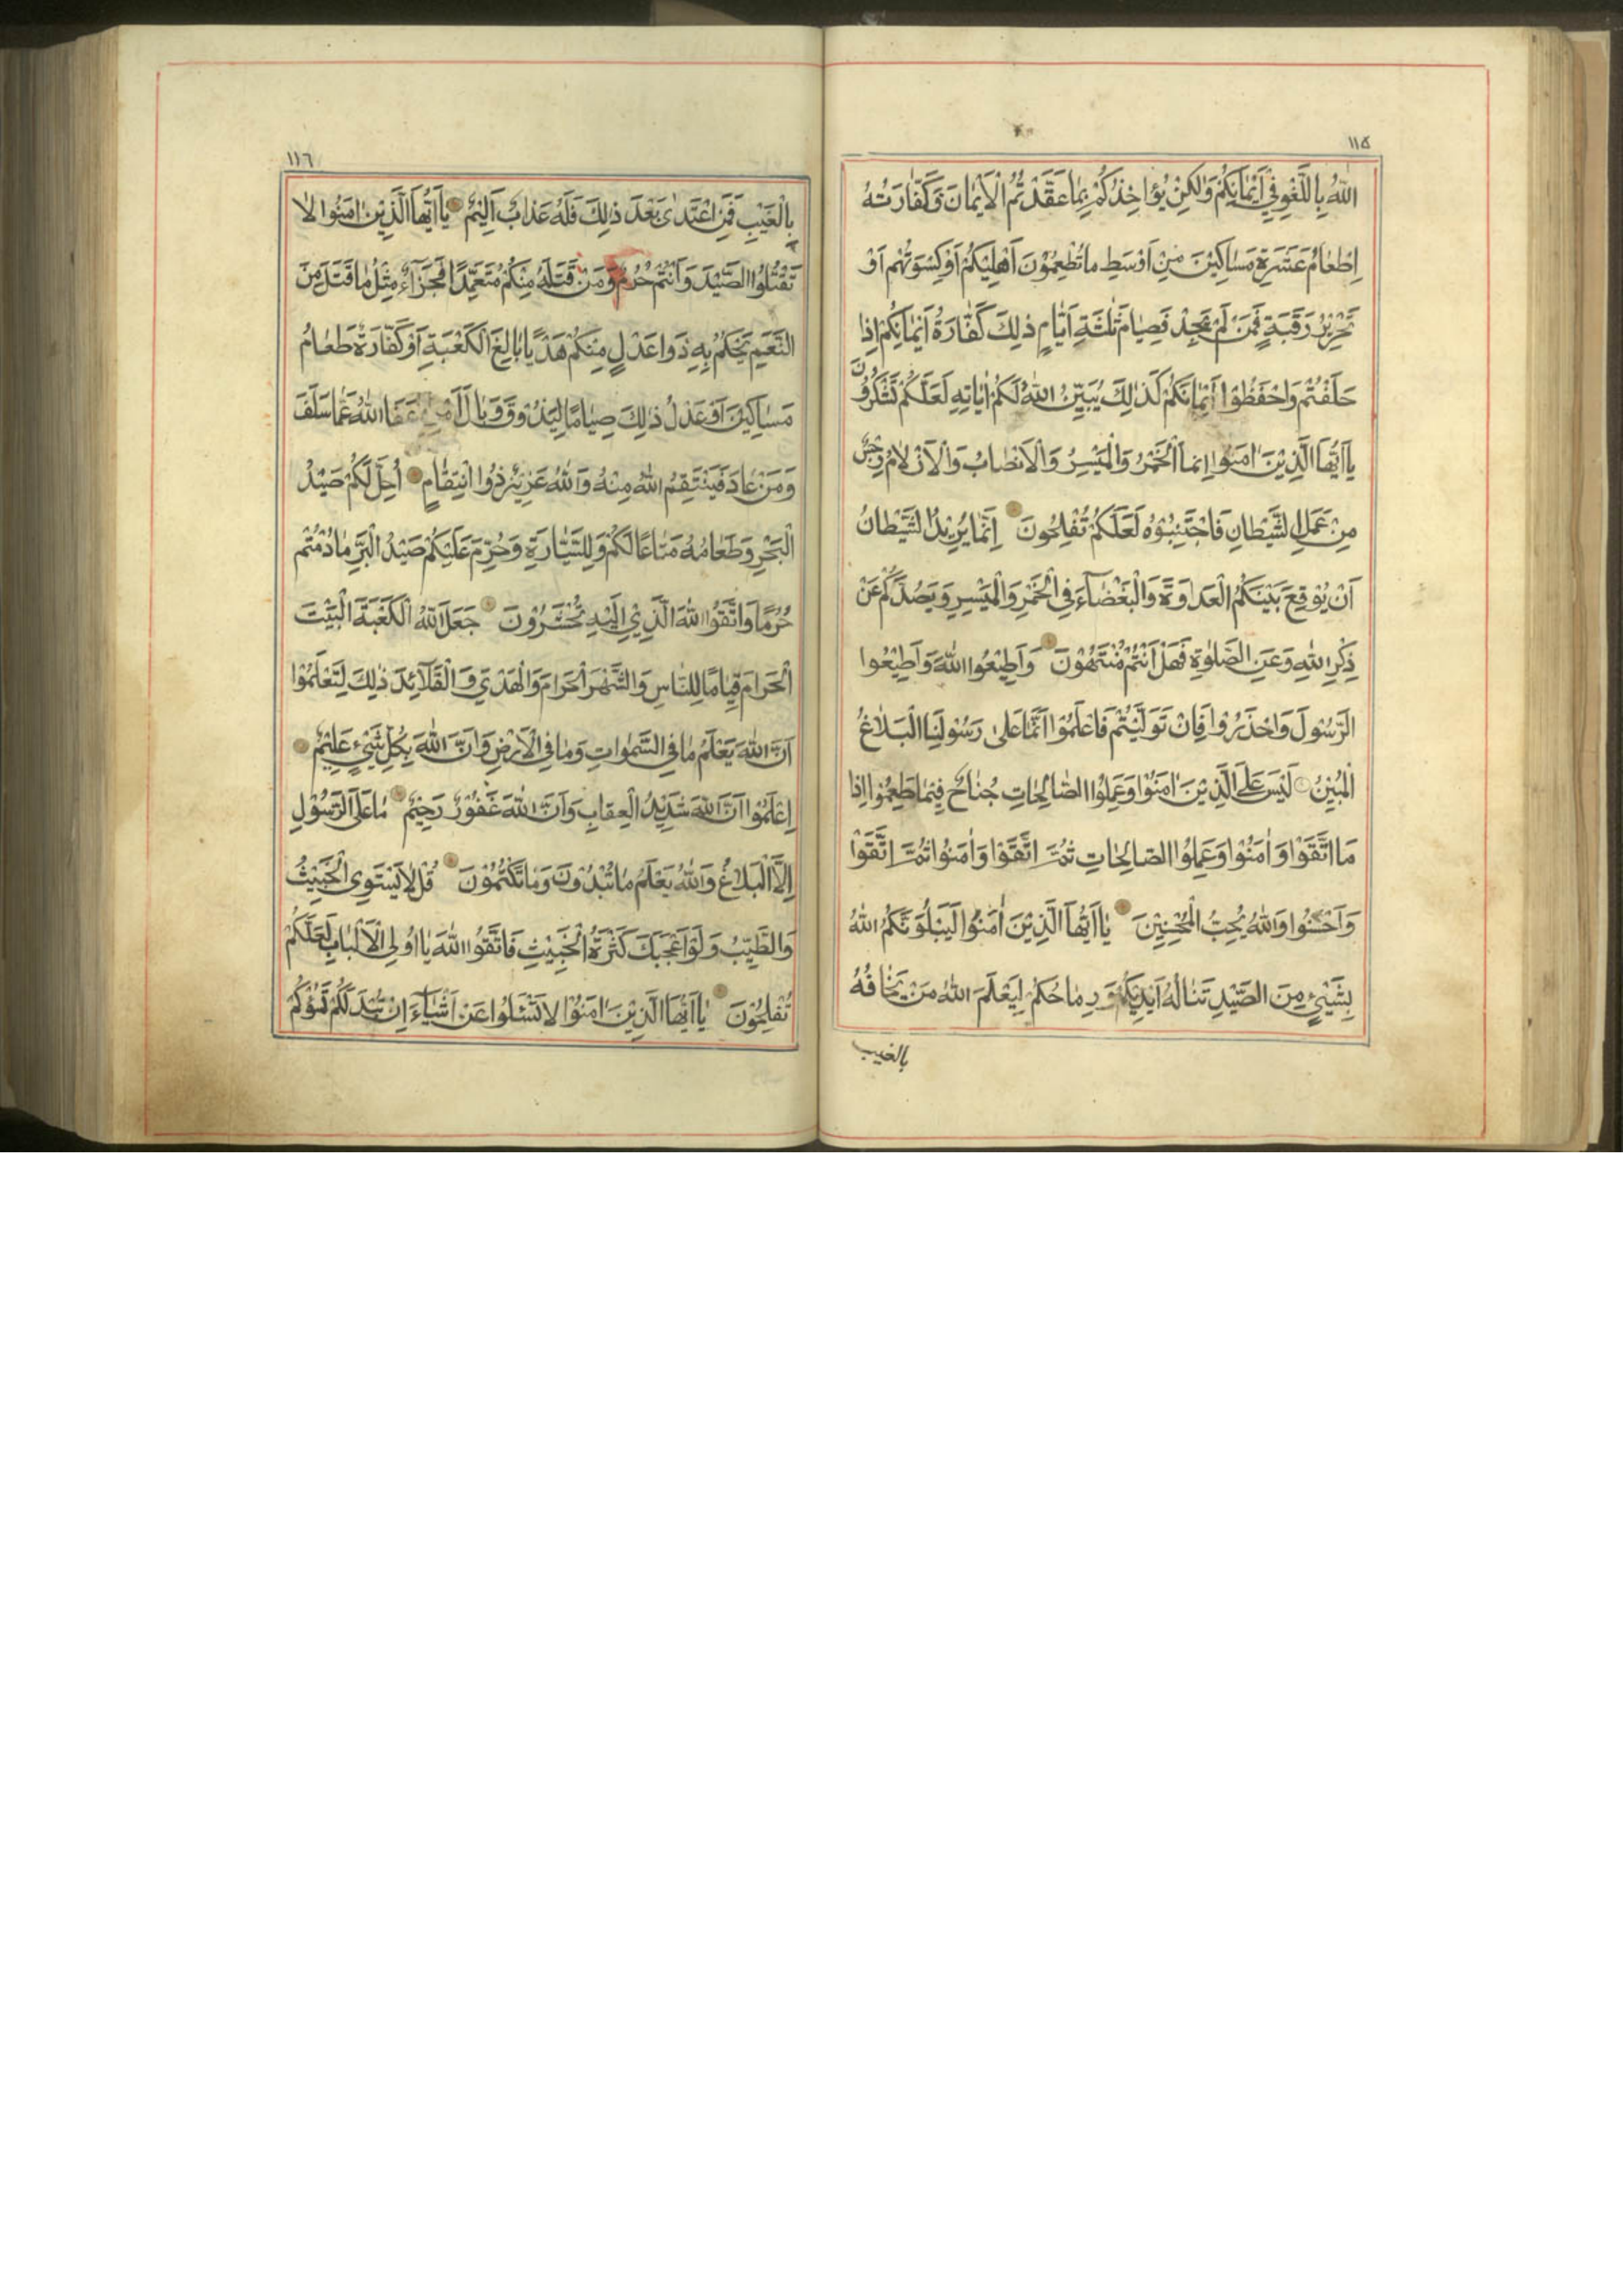 ١١٥
الله بِاللَّغْوِ فِي أَيْمَانِكُمْ وَلَكِنْ يُؤَاخِذُكُمْ بِمَا عَقَّدْتُمُ الْأَيْمَانَ فَكَفَّارَتُهُ
إِطْعَامُ عَشَرَةِ مَسَاكِينَ مِنْ أَوْسَطِ مَا تُطْعِمُونَ أَهْلِيكُمْ أَوْ كِسْوَتُهُمْ أَوْ
تَحْرِيرُ رَقَبَةٍ فَمَنْ لَمْ يَجِدْ فَصِيَامُ ثَلٰثَةِ أَيَّامٍ ذٰلِكَ كَفَّارَةُ أَيْمَانِكُمْ إِذَا
حَلَفْتُمْ وَاحْفَظُوا أَيْمَانَكُمْ كَذٰلِكَ يُبَيِّنُ اللهُ لَكُمْ اٰيَاتِهِ لَعَلَّكُمْ تَشْكُرُونَ
يَا أَيُّهَا الَّذِينَ اٰمَنُوا إِنَّمَا الْخَمْرُ وَالْمَيْسِرُ وَالْأَنْصَابُ وَالْأَزْلَامُ رِجْسٌ
مِنْ عَمَلِ الشَّيْطَانِ فَاجْتَنِبُوهُ لَعَلَّكُمْ تُفْلِحُونَ إِنَّمَا يُرِيدُ الشَّيْطَانُ
أَنْ يُوقِعَ بَيْنَكُمُ الْعَدَاوَةَ وَالْبَغْضَاءَ فِي الْخَمْرِ وَالْمَيْسِرِ وَيَصُدَّكُمْ عَنْ
ذِكْرِ اللهِ وَعَنِ الصَّلٰوةِ فَهَلْ أَنْتُمْ مُنْتَهُونَ وَأَطِيعُوا اللهَ وَأَطِيعُوا
الرَّسُولَ وَاحْذَرُوا فَإِنْ تَوَلَّيْتُمْ فَاعْلَمُوا أَنَّمَا عَلَىٰ رَسُولِنَا الْبَلَاغُ
الْمُبِينُ لَيْسَ عَلَى الَّذِينَ اٰمَنُوا وَعَمِلُوا الصَّالِحَاتِ جُنَاحٌ فِيمَا طَعِمُوا إِذَا
مَا اتَّقَوْا وَاٰمَنُوا وَعَمِلُوا الصَّالِحَاتِ ثُمَّ اتَّقَوْا وَاٰمَنُوا ثُمَّ اتَّقَوْا
وَأَحْسَنُوا وَاللهُ يُحِبُّ الْمُحْسِنِينَ يَا أَيُّهَا الَّذِينَ اٰمَنُوا لَيَبْلُوَنَّكُمُ اللهُ
بِشَيْءٍ مِنَ الصَّيْدِ تَنَالُهُ أَيْدِيكُمْ وَرِمَاحُكُمْ لِيَعْلَمَ اللهُ مَنْ يَخَافُهُ
بالغيب
١١٦
بِالْغَيْبِ فَمَنِ اعْتَدَىٰ بَعْدَ ذٰلِكَ فَلَهُ عَذَابٌ أَلِيمٌ يَا أَيُّهَا الَّذِينَ اٰمَنُوا لَا
تَقْتُلُوا الصَّيْدَ وَأَنْتُمْ حُرُمٌ وَمَنْ قَتَلَهُ مِنْكُمْ مُتَعَمِّدًا فَجَزَاءٌ مِثْلُ مَا قَتَلَ مِنَ
النَّعَمِ يَحْكُمُ بِهِ ذَوَا عَدْلٍ مِنْكُمْ هَدْيًا بَالِغَ الْكَعْبَةِ أَوْ كَفَّارَةٌ طَعَامُ
مَسَاكِينَ أَوْ عَدْلُ ذٰلِكَ صِيَامًا لِيَذُوقَ وَبَالَ أَمْرِهِ عَفَا اللهُ عَمَّا سَلَفَ
وَمَنْ عَادَ فَيَنْتَقِمُ اللهُ مِنْهُ وَاللهُ عَزِيزٌ ذُوا انْتِقَامٍ أُحِلَّ لَكُمْ صَيْدُ
الْبَحْرِ وَطَعَامُهُ مَتَاعًا لَكُمْ وَلِلسَّيَّارَةِ وَحُرِّمَ عَلَيْكُمْ صَيْدُ الْبَرِّ مَا دُمْتُمْ
حُرُمًا وَاتَّقُوا اللهَ الَّذِي إِلَيْهِ تُحْشَرُونَ جَعَلَ اللهُ الْكَعْبَةَ الْبَيْتَ
الْحَرَامَ قِيَامًا لِلنَّاسِ وَالشَّهْرَ الْحَرَامَ وَالْهَدْيَ وَالْقَلَائِدَ ذٰلِكَ لِتَعْلَمُوا
أَنَّ اللهَ يَعْلَمُ مَا فِي السَّمٰوَاتِ وَمَا فِي الْأَرْضِ وَأَنَّ اللهَ بِكُلِّ شَيْءٍ عَلِيمٌ
اِعْلَمُوا أَنَّ اللهَ شَدِيدُ الْعِقَابِ وَأَنَّ اللهَ غَفُورٌ رَحِيمٌ مَا عَلَى الرَّسُولِ
إِلَّا الْبَلَاغُ وَاللهُ يَعْلَمُ مَا تُبْدُونَ وَمَا تَكْتُمُونَ قُلْ لَا يَسْتَوِي الْخَبِيثُ
وَالطَّيِّبُ وَلَوْ أَعْجَبَكَ كَثْرَةُ الْخَبِيثِ فَاتَّقُوا اللهَ يَا أُولِي الْأَلْبَابِ لَعَلَّكُمْ
تُفْلِحُونَ يَا أَيُّهَا الَّذِينَ اٰمَنُوا لَا تَسْئَلُوا عَنْ أَشْيَاءَ إِنْ تُبْدَ لَكُمْ تَسُؤْكُمْ